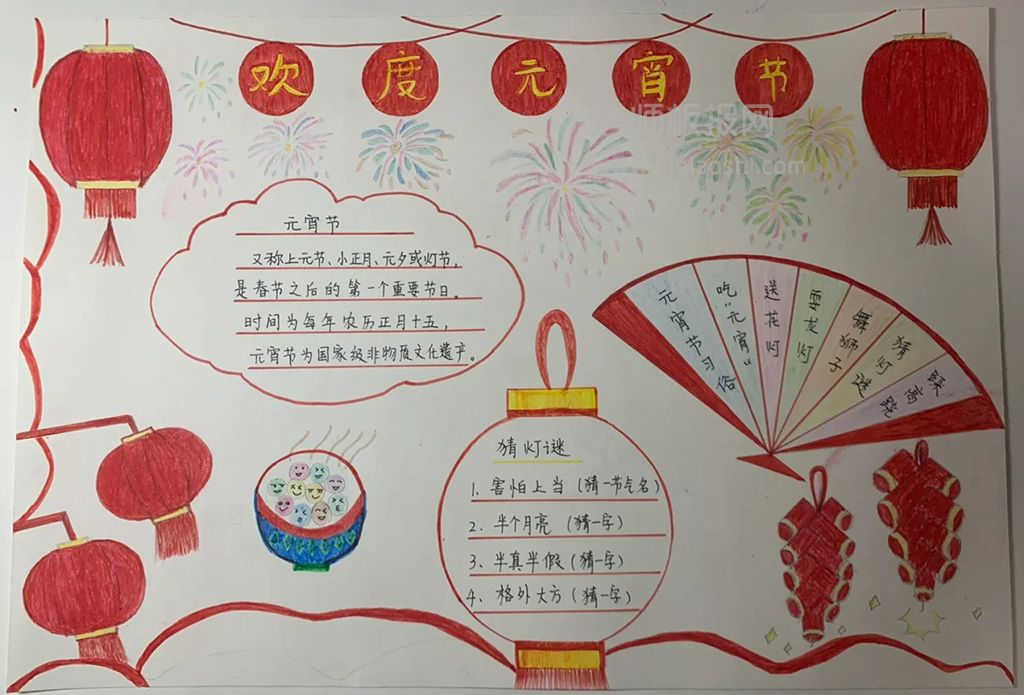 欢度元宵节
元宵节
又称上元节、小正月、元夕或灯节，
是春节之后的第一个重要节日。
时间为每年农历正月十五，
元宵节为国家级非物质文化遗产。
元宵节习俗
吃“元宵”
送花灯
耍龙灯
舞狮子
猜灯谜
踩高跷
猜灯谜
1、害怕上当（猜一节点名）
2、半个月亮（猜一字）
3、半真半假（猜一字）
4、格外大方（猜一字）